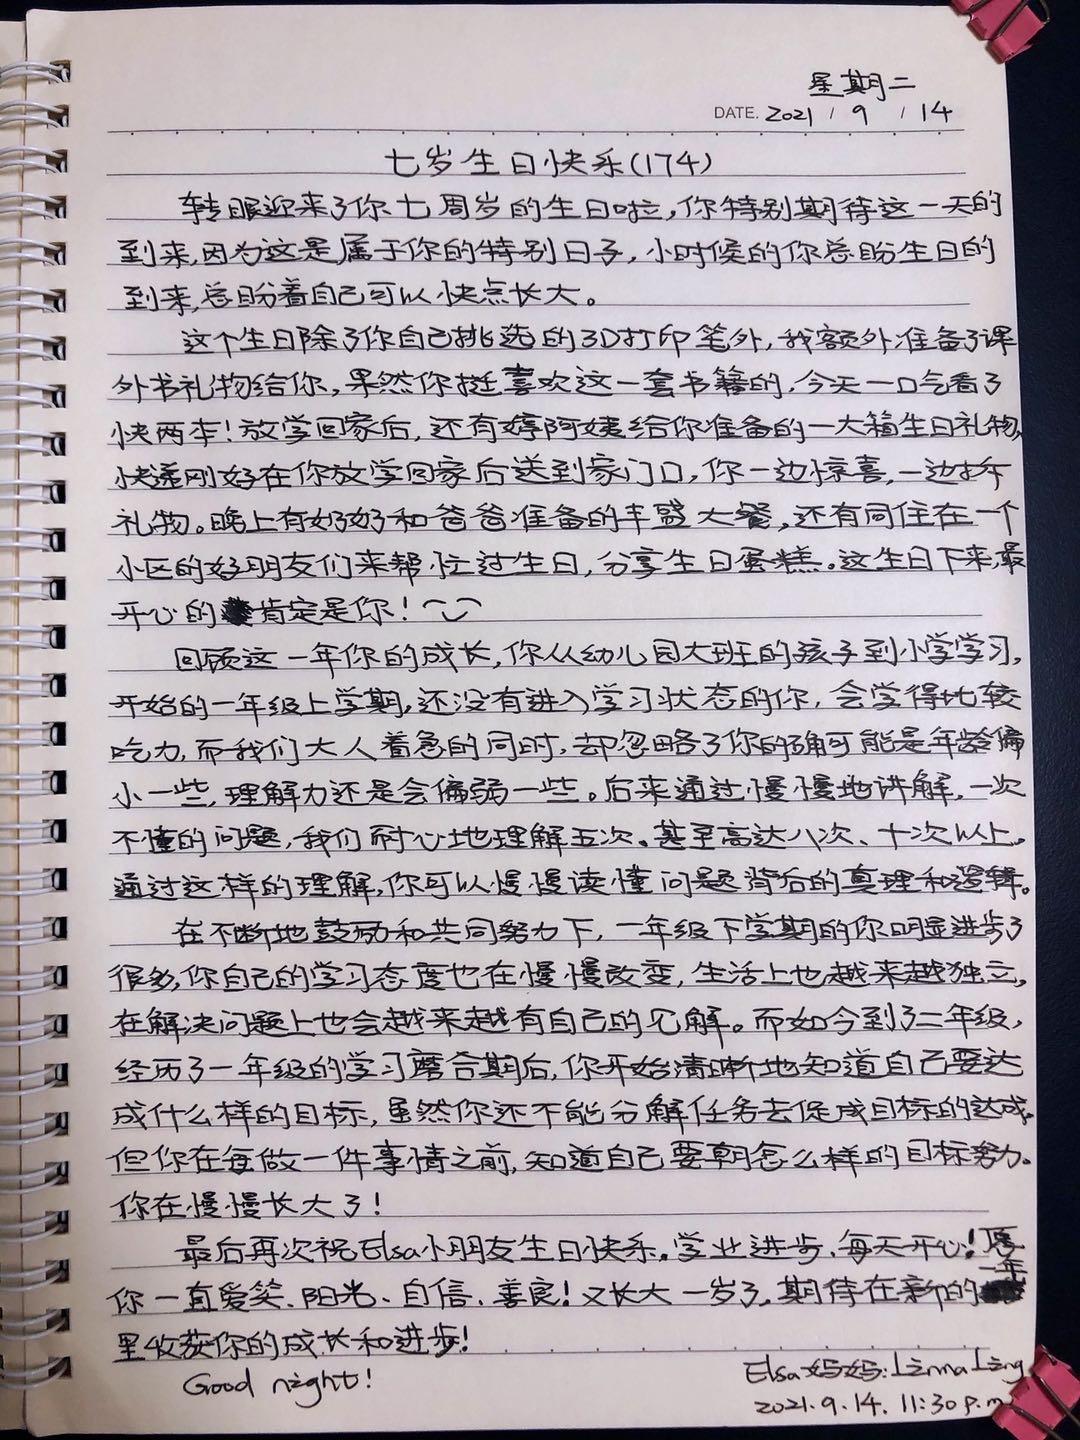 星期二
DATE. 2021 / 9 / 14
七岁生日快乐(174)
转眼迎来了你七周岁的生日啦,你特别期待这一天的
到来,因为这是属于你的特别日子,小时候的你总盼生日的
到来,总盼着自己可以快点长大。
这个生日除了你自己挑选的3D打印笔外,我额外准备了课
外书礼物给你,果然你挺喜欢这一套书籍的,今天一口气看了
快两本!放学回家后,还有婷阿姨给你准备的一大箱生日礼物,
快递刚好在你放学回家后送到家门口,你一边惊喜,一边拆
礼物。晚上有奶奶和爸爸准备的丰盛大餐,还有同住在一个
小区的好朋友们来帮忙过生日,分享生日蛋糕。这生日下来,最
开心的肯定是你!
回顾这一年你的成长,你从幼儿园大班的孩子到小学学习,
开始的一年级上学期,还没有进入学习状态的你,会学得比较
吃力,而我们大人着急的同时,却忽略了你的确可能是年龄偏
小一些,理解力还是会偏弱一些。后来通过慢慢地讲解,一次
不懂的问题,我们耐心地理解五次、甚至高达八次、十次以上。
通过这样的理解,你可以慢慢读懂问题背后的真理和逻辑。
在不断地鼓励和共同努力下,一年级下学期的你明显进步了
很多,你自己的学习态度也在慢慢改变,生活上也越来越独立,
在解决问题上也会越来越有自己的见解。而如今到了二年级,
经历了一年级的学习磨合期后,你开始清晰地知道自己要达
成什么样的目标,虽然你还不能分解任务去促成目标的达成,
但你在每做一件事情之前,知道自己要朝怎么样的目标努力。
你在慢慢长大了!
最后再次祝Elsa小朋友生日快乐,学业进步,每天开心!愿
你一直爱笑、阳光、自信、善良!又长大一岁了,期待在新的一年
里收获你的成长和进步!
Good night!
Elsa妈妈:Linna Ling
2021.9.14. 11:30 p.m